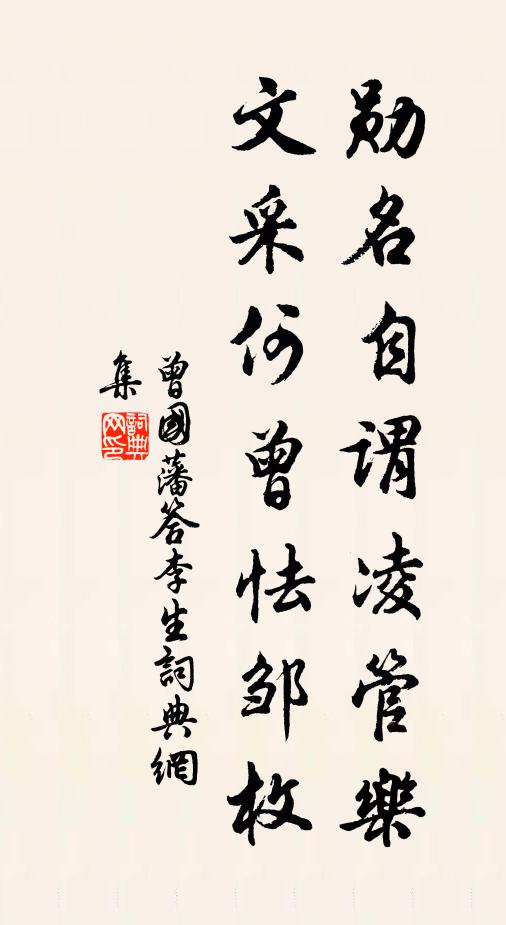 勋名自谓凌管樂
文采何曾怯邹枚
曾國藩答李生詞典網
集
詞典网印